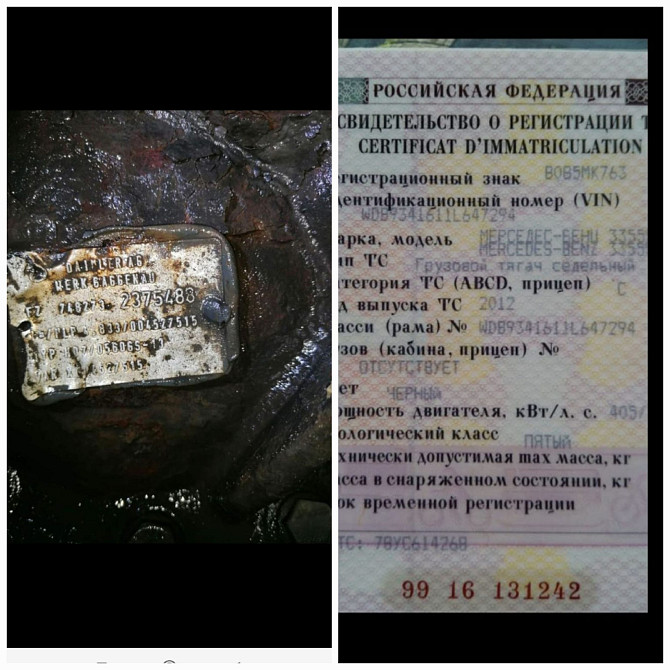 DAIMLER AG
WERK GAGGENAU
2375488
РОССИЙСКАЯ ФЕДЕРАЦИЯ
СВИДЕТЕЛЬСТВО О РЕГИСТРАЦИИ Т
CERTIFICAT D'IMMATRICULATION
егистрационный знак В085МК763
дентификационный номер (VIN)
WDB9341611L647294
арка, модель МЕРСЕДЕС-БЕНЦ 3355
ип ТС MERCEDES-BENZ 3355
Грузовой тягач седельный
атегория ТС (ABCD, прицеп) C
д выпуска ТС 2012
асси (рама) № WDB9341611L647294
зов (кабина, прицеп) №
ОТСУТСТВУЕТ
ет ЧЕРНЫЙ
ощность двигателя, кВт/л. с. 405/
ологический класс ПЯТЫЙ
хнически допустимая max масса, кг
асса в снаряженном состоянии, кг
ок временной регистрации
ТС: 78УС614268
99 16 131242